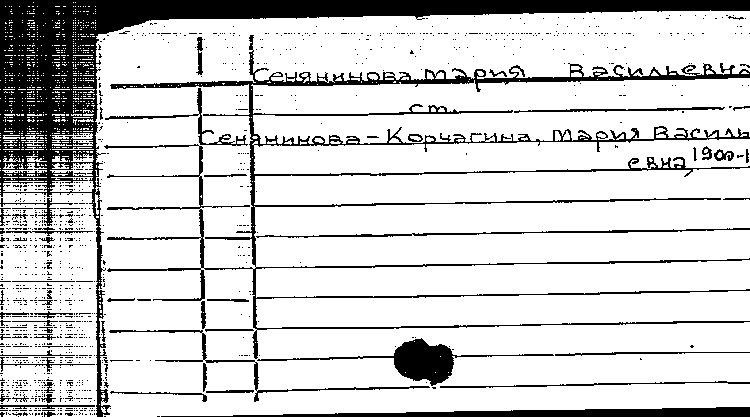 Сенянинова, Мария Васильевна
ст.
Сенянинова-Корчагина, Мария Василь
евна, 1900-1